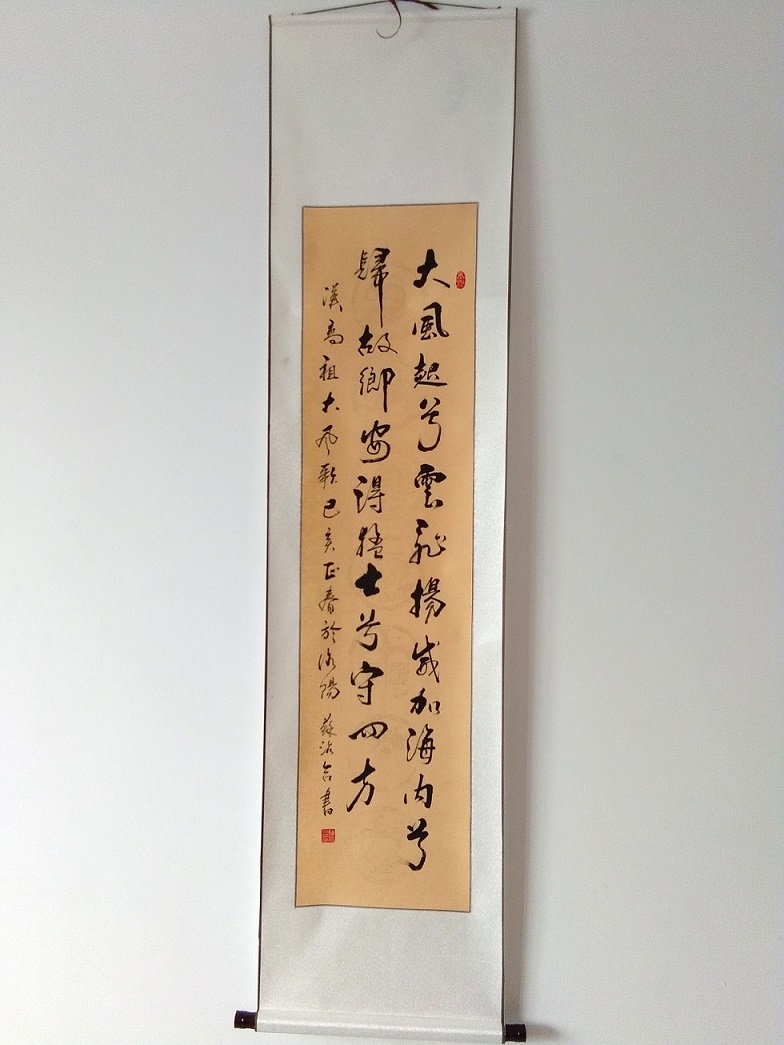 大風起兮雲飛揚威加海内兮
歸故鄉安得猛士兮守四方
漢高祖大风歌己亥正春於洛陽 蘇治書